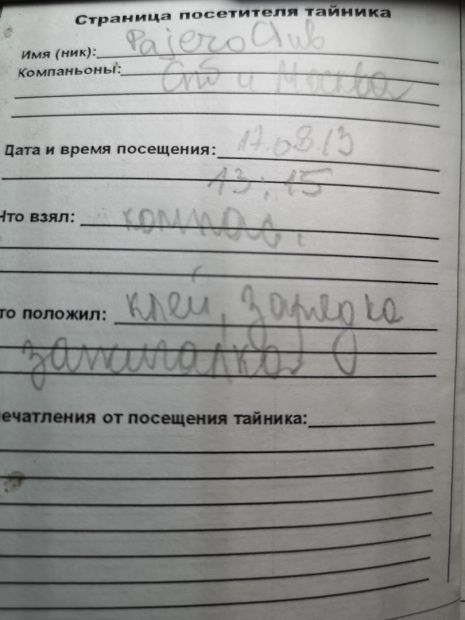 Страница посетителя тайника
Имя (ник): Pajero Club
Компаньоны: Спб и Москва
Дата и время посещения: 17.08.13
13:15
Что взял: компас.
то положил: клей, зарядка
зажигалка
ечатления от посещения тайника: